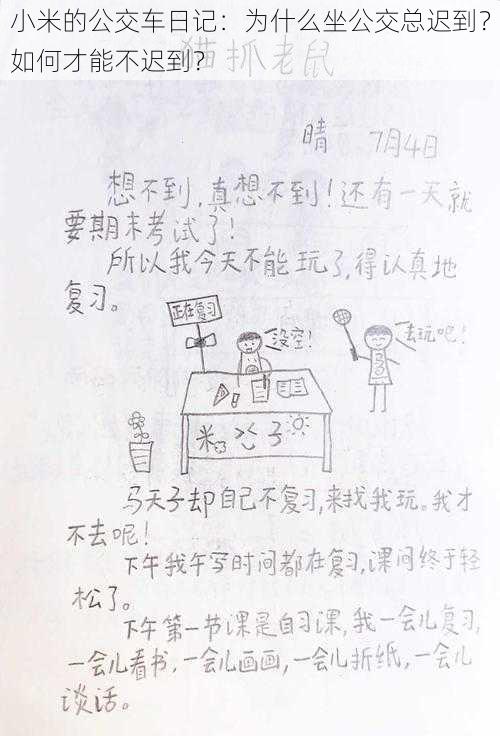 小米的公交车日记：为什么坐公交总迟到？
如何才能不迟到？
猫抓老鼠
晴 7月4日
想不到，真想不到！还有一天就
要期末考试了！
所以我今天不能玩了，得认真地
复习。
正在复习
没空！
去玩吧！
米
子
马天子却自己不复习，来找我玩。我才
不去呢！
下午我午写时间都在复习，课间终于轻
松了。
下午第一节课是自习课，我一会儿复习，
一会儿看书，一会儿画画，一会儿折纸，一会儿
谈话。